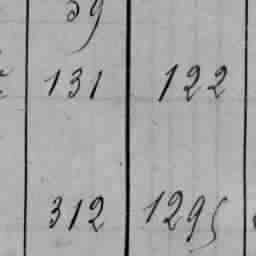 59
131 122
312 1295